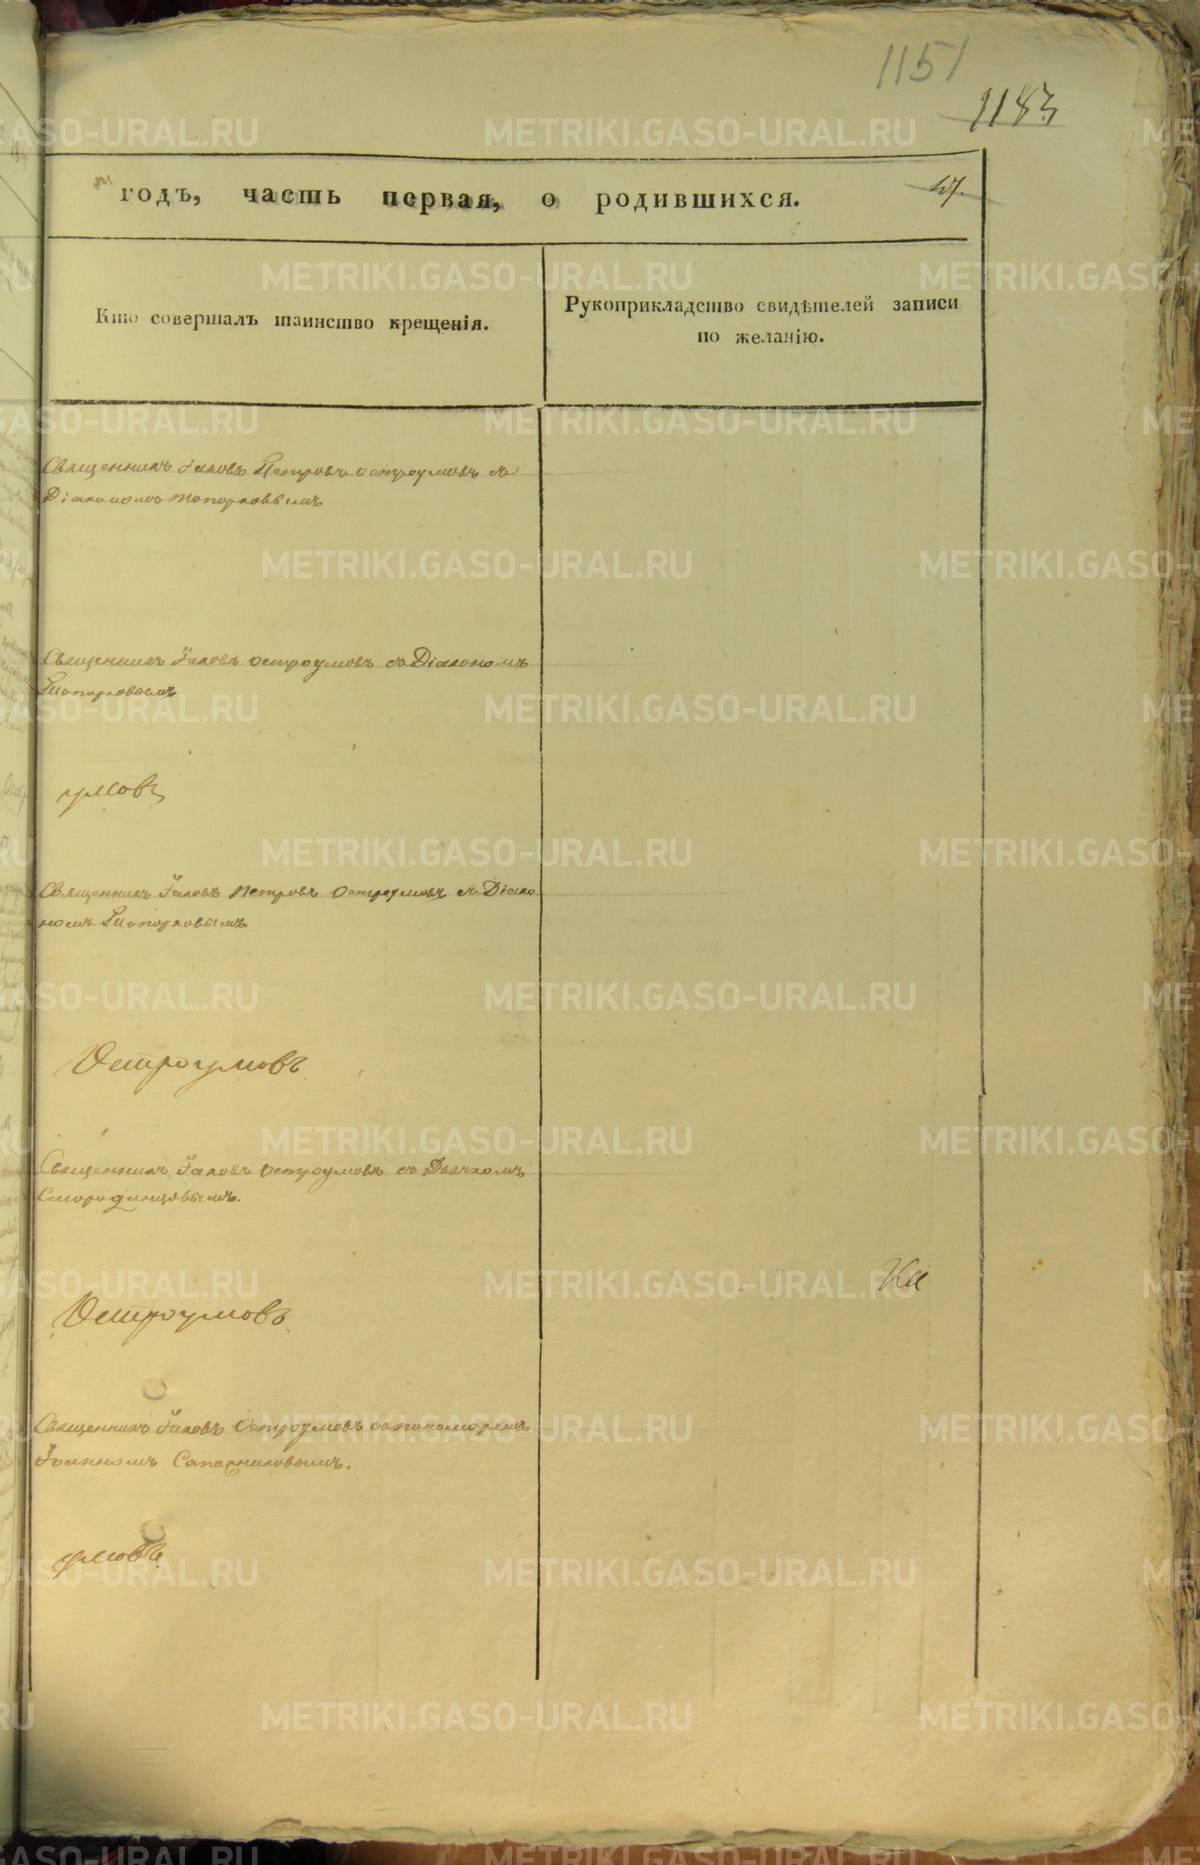 1151
1183
годъ, часть первая, о родившихся.
47.
Кто совершалъ таинство крещенія.
Рукоприкладство свидѣтелей записи
по желанію.
Священникъ Іаковъ Петровъ Остроумовъ съ
Діакономъ Топорковымъ
Священникъ Іаковъ Остроумовъ съ Діакономъ
Топорковымъ
умовъ
Священникъ Іаковъ Петровъ Остроумовъ съ Діако
номъ Топорковымъ
Остроумовъ
Священникъ Іаковъ Остроумовъ съ Дьячкомъ
Смородинцовымъ.
Остроумовъ
Священникъ Іаковъ Остроумовъ съ пономаремъ
Іоанномъ Сапожниковымъ.
умовъ
METRIKI.GASO-URAL.RU